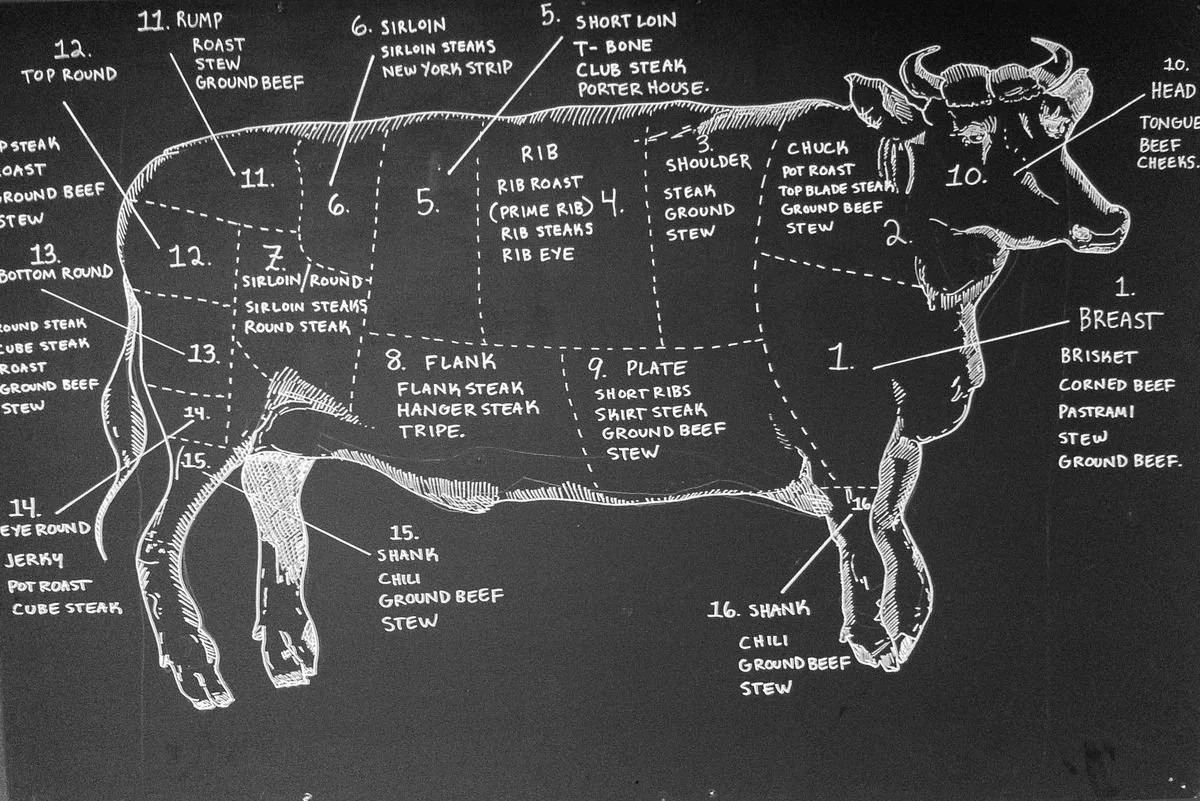 11. RUMP
ROAST
STEW
GROUND BEEF
6. SIRLOIN
SIRLOIN STEAKS
NEW YORK STRIP
5. SHORT LOIN
T-BONE
CLUB STEAK
PORTER HOUSE.
12.
TOP ROUND
P STEAK
OAST
ROUND BEEF
STEW
13.
BOTTOM ROUND
OUND STEAK
CUBE STEAK
ROAST
GROUND BEEF
STEW
14.
EYE ROUND
JERKY
POT ROAST
CUBE STEAK
11.
6.
5.
RIB
RIB ROAST
(PRIME RIB) 4.
RIB STEAKS
RIB EYE
3.
SHOULDER
STEAK
GROUND
STEW
CHUCK
POT ROAST
TOP BLADE STEAK
GROUND BEEF
STEW
2.
10.
10.
HEAD
TONGUE
BEEF
CHEEKS.
12.
7.
SIRLOIN/ROUND
SIRLOIN STEAKS
ROUND STEAK
13.
14.
15.
8. FLANK
FLANK STEAK
HANGER STEAK
TRIPE.
9. PLATE
SHORT RIBS
SKIRT STEAK
GROUND BEEF
STEW
1.
1.
BREAST
BRISKET
CORNED BEEF
PASTRAMI
STEW
GROUND BEEF.
15.
SHANK
CHILI
GROUND BEEF
STEW
16
16. SHANK
CHILI
GROUND BEEF
STEW